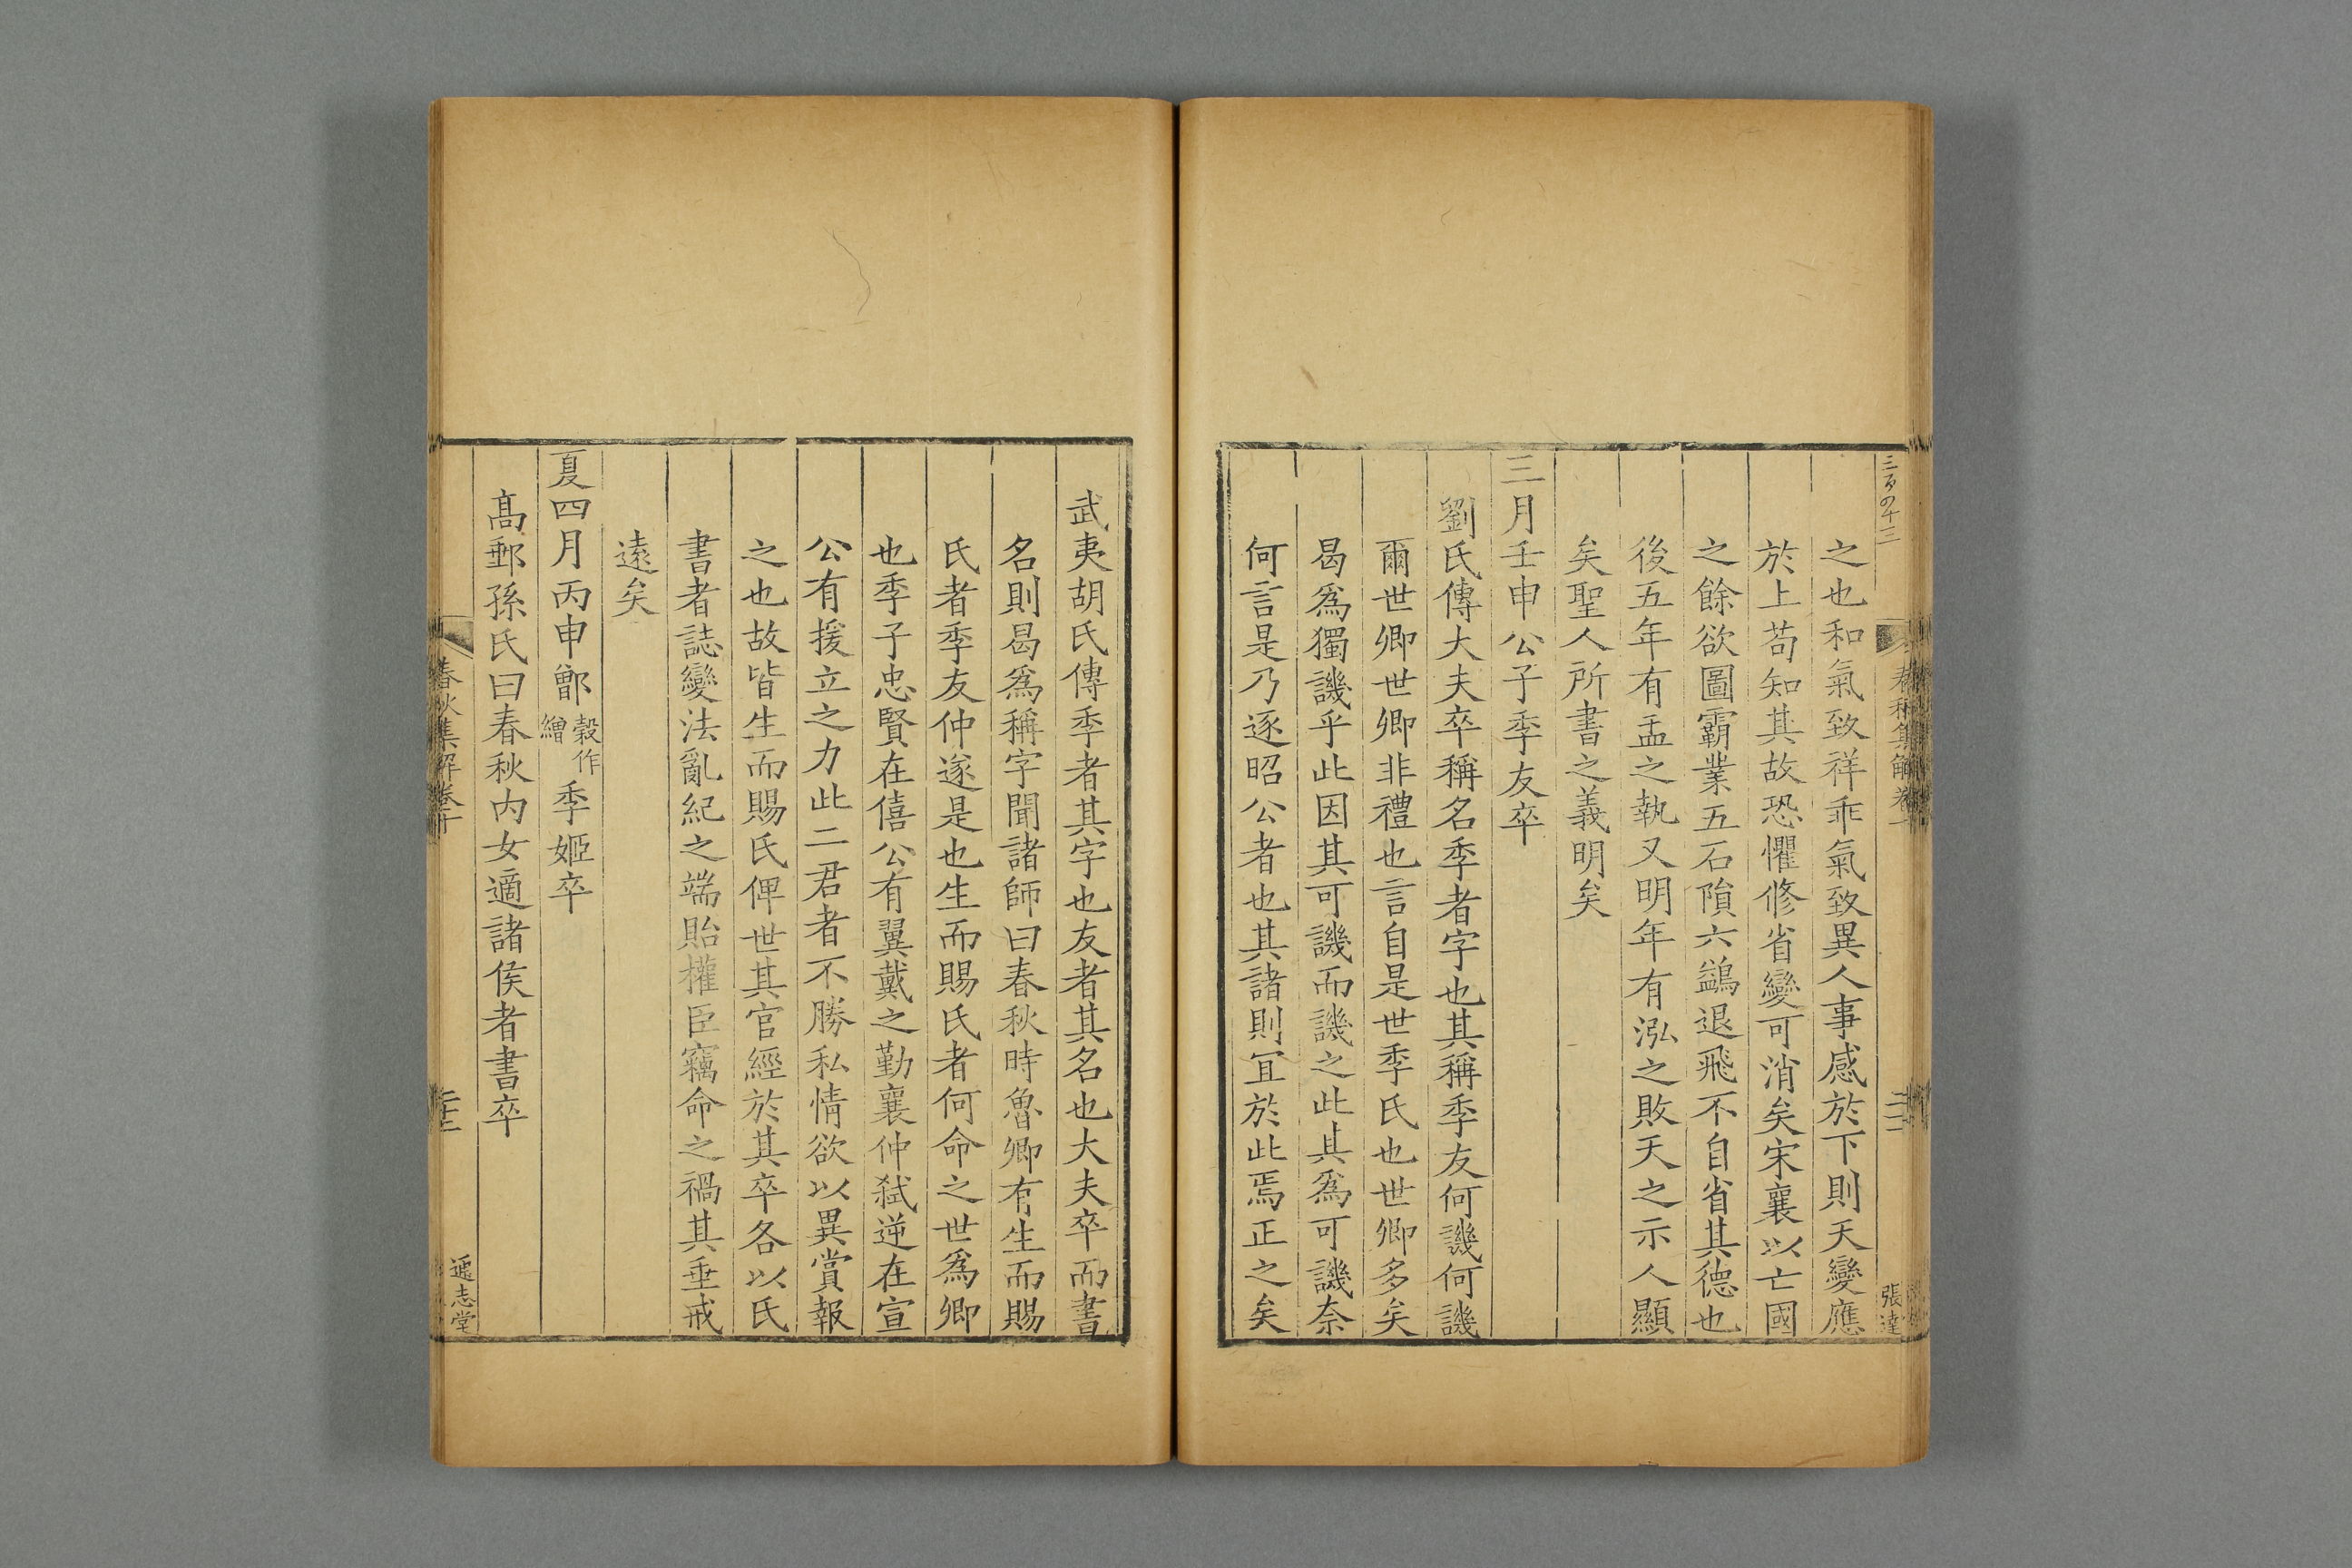 之也和氣致祥乖氣致異人事感於下則天變應
於上苟知其故恐懼修省變可消矣宋襄以亡國
之餘欲圖霸業五石隕六鷁退飛不自省其德也
後五年有盂之執又明年有泓之敗天之示人顯
矣聖人所書之義明矣
三月壬申公子季友卒
劉氏傳大夫卒稱名季者字也其稱季友何譏何譏
爾世卿世卿非禮也言自是世季氏也世卿多矣
曷爲獨譏乎此因其可譏而譏之此其爲可譏奈
何言是乃逐昭公者也其諸則冝於此焉正之矣
張達
武夷胡氏傳季者其字也友者其名也大夫卒而書
名則曷爲稱字聞諸師曰春秋時魯卿有生而賜
氏者季友仲遂是也生而賜氏者何命之世爲卿
也季子忠賢在僖公有翼戴之勤襄仲弑逆在宣
公有援立之力此二君者不勝私情欲以異賞報
之也故皆生而賜氏俾世其官經於其卒各以氏
書者誌變法亂紀之端貽權臣竊命之禍其垂戒
遠矣
夏四月丙申鄫穀作繒季姬卒
髙郵孫氏曰春秋内女適諸侯者書卒
春秋集解卷十
遜志堂